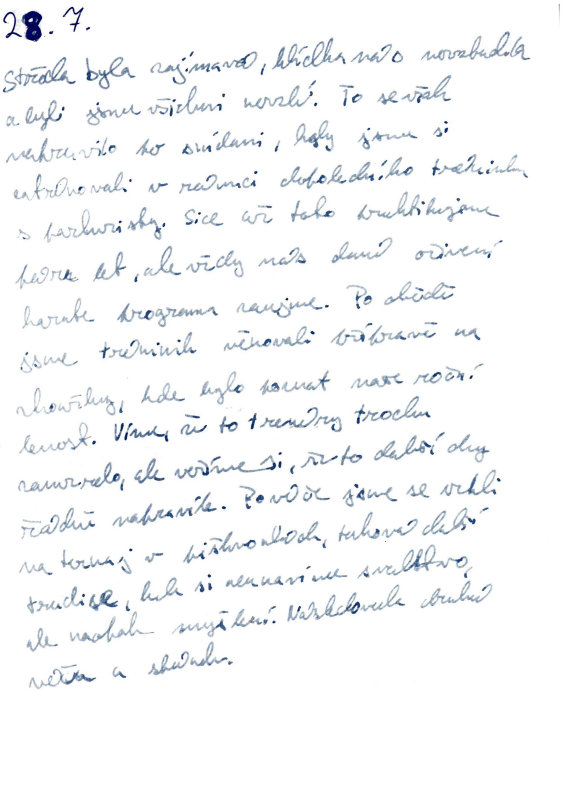 28. 7.
Střída byla zajímavá, hlídka nás nevzbudila
a byli jsme všichni nervózní. To se však
napravilo po snídani, kdy jsme si
zatrénovali v rámci dopoledního tréninku
s parkuristy. Sice už toho praktikujeme
pára let, ale vždy nás dané oživení
karate programu zaujme. Po obědě
jsme trénink věnovali přípravě na
zkoušky, kde bylo poznat naše roční
lenost. Víme, že to trenéry trochu
zamrzelo, ale věříme si, že to další dny
řádně napravíme. Po večeři jsme se vrhli
na turnaj v piškvorkách, taková další
tradice, kde si neunavíme svalstvo,
ale naopak myšlení. Následovala druhá
večeře a spánek.